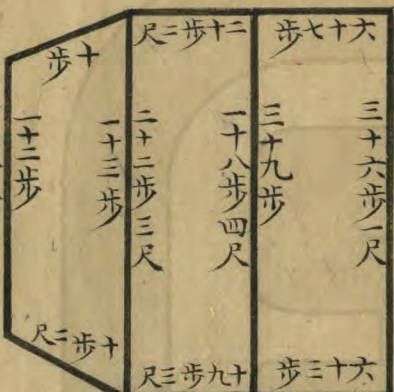 六十七步
三十六步一尺
三十九步
六十三步
二十步二尺
一十八步四尺
二十二步三尺
十九步三尺
十步
一十三步
一十二步
十步二尺